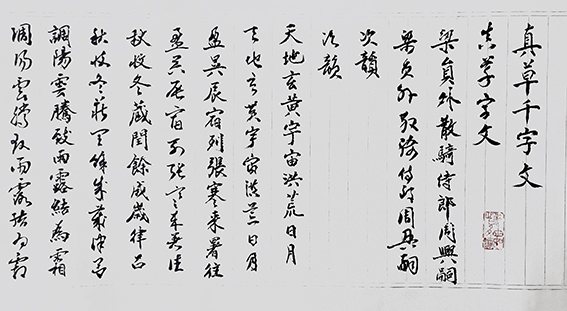 真草千字文
真草字文
梁員外散騎侍郎周興嗣
梁員外散騎侍郎周興嗣
次韻
次韻
天地玄黃宇宙洪荒日月
天地玄黃宇宙洪荒日月
盈昃辰宿列張寒来暑往
盈昃辰宿列張寒来暑往
秋收冬藏閏餘成歲律呂
秋收冬藏閏餘成歲律呂
調陽雲騰致雨露結為霜
調陽雲騰致雨露結為霜